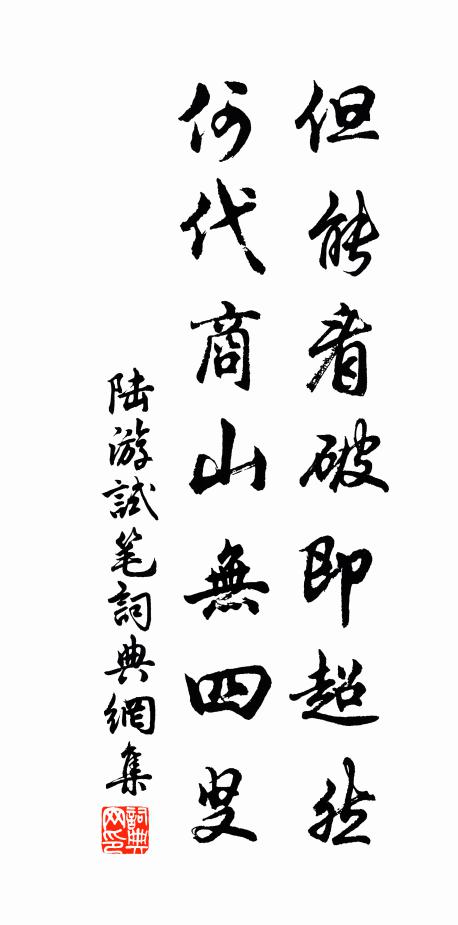 但能看破即超然
何代商山無四叟
陆游試笔詞典網集
詞典网印